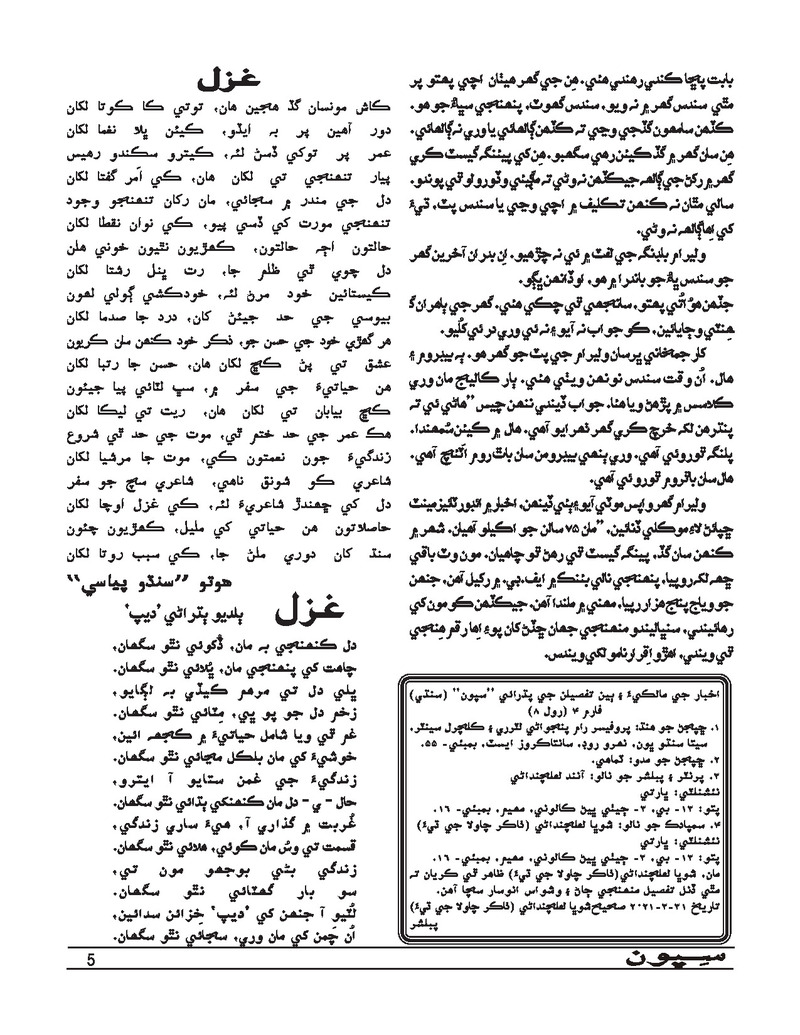 بابت پڇا ڪندي رهندي هئي. هن جي گهر هيٺان اچي پهتو پر
مٿي سندس گهر ۾ نه ويو. سندس گهوٽ، پنهنجي سڀاءَ جو هو.
ڪڏهن سامهون گڏجي وڃي ته ڪڏهن ڳالهائي يا وري نه ڳالهائي.
هن سان گهر ۾ گڏ ڪيئن رهي سگهبو. هن کي پيئنگ گيسٽ ڪري
گهر ۾ رکڻ جي ڳالهه جيڪڏهن نه وڻي ته مڃيئي وٺورولو ٿي پوندو.
سالي مٿان نه ڪنهن تڪليف ۾ اچي وڃي يا سندس پٽ، ڌيءَ
کي اِها ڳالهه نه وڻي.
وليرام بلڊنگ جي لفٽ ۾ ئي نه چڙهيو. اِن بدران آخرين گهر
جو سندس ڀاءُ جو باندرا ۾ هو، اوڏانهن ڀڳو.
جڏهن هوُ اُتي پهتو، سانجهي ٿي چڪي هئي. گهر جي ٻاهران گ
هنٽي وڄايائين، ڪو جواب نه آيو ۽ نه ئي وري در ئي کُليو.
ڪار جمخاني پرسان وليرام جي پٽ جو گهر هو. ٻه بيڊروم ۽
هال. اُن وقت سندس نونهن ويٺي هئي. ٻار ڪاليج مان وري
ڪلاسس ۾ پڙهڻ ويا هئا. جواب ڏيندي ننهن چيس ”هاڻي ئي ته
پندرهن لک خرچ ڪري گهر ٺهرايو آهي. هال ۾ ڪيئن سُمهندا.
پلنگ ٿوروئي آهي. وري ٻنهي بيڊرومن سان باٿ روم اٽئچ آهي.
هال سان باٿروم ٿوروئي آهي.
وليرام گهر واپس موٽي آيو ۽ ٻئي ڏينهن، اخبار ۾ ائڊورٽائيزمينٽ
ڇپائڻ لاءِ موڪلي ڏنائين، ”مان ۷۵ سالن جو اڪيلو آهيان. شهر ۾
ڪنهن سان گڏ، پيئنگ گيسٽ ٿي رهڻ ٿو چاهيان. مون وٽ باقي
ڇهه لک روپيا، پنهنجي نالي بئنڪ ۾ ايف.ڊي. ۾ رکيل آهن، جنهن
جو وياج پنج هزار رپيا، مهني ۾ ملندا آهن. جيڪڏهن ڪو مون کي
رهائيندي، سنڀاليندو منهنجي جهان ڇڏڻ کان پوءِ اِها رقم هنجي
ٿي ويندي، اهڙو اِقرارنامو لکي ويندس.
اخبار جي مالڪيءَ ۽ ٻين تفصيلن جي پڌرائي ”سپون“ (سنڌي)
فارم ۴ (رول ۸)
۱. ڇپجڻ جو هنڌ: پروفيسر رام پنجواڻي لٽرري ۽ ڪلچرل سينٽر،
سيتا سنڌو ڀون، نهرو روڊ، سانتاڪروز ايسٽ، بمبئي- ۵۵.
۲. ڇپجڻ جو مدو: ٽماهي.
۳. پرنٽر ۽ پبلشر جو نالو: آنند لعلچنداڻي
نئشنلٽي: ڀارتي
پتو: ۱۳- بي، ۳- جيٺي ڀين ڪالوني، مهيم، بمبئي- ۱۶.
۴. سمپادڪ جو نالو: شوڀا لعلچنداڻي (ڊاڪٽر چاولا جي ڌيءَ)
نئشنلٽي: ڀارتي
پتو: ۱۳- بي، ۳- جيٺي ڀين ڪالوني، مهيم، بمبئي- ۱۶.
مان، شوڀا لعلچنداڻي(ڊاڪٽر چاولا جي ڌيءَ) ظاهر ٿي ڪريان ته
مٿي ڏنل تفصيل منهنجي ڄاڻ ۽ وشواس انوسار سچا آهن.
تاريخ ۳۱-۳-۲۰۲۱ صحيح شوڀا لعلچنداڻي (ڊاڪٽر چاولا جي ڌيءَ)
پبلشر
غزل
ڪاش مونسان گڏ هجين هان، توتي ڪا ڪوتا لکان
دور آهين پر به ايڏو، ڪيئن ڀلا نغما لکان
عمر ڀر توکي ڏسڻ لئه، ڪيترو سڪندو رهيس
پيار تنهنجي تي لکان هان، ڪي اَمر گفتا لکان
دل جي مندر ۾ سجائي، مان رکان تنهنجو وجود
تنهنجي مورت کي ڏسي پيو، ڪي نوان نقطا لکان
حالتون اڄه حالتون، ڪهڙيون ٿيون خوني هلن
دل چوي ٿي ظلم جا، رت ڀنل رشتا لکان
ڪيستائين خود مرڻ لئه، خودڪشي ڳولي لهون
بيوسي جي حد جيئڻ کان، درد جا صدما لکان
هر گهڙي خود جي حسن جو، ذڪر خود ڪنهن سان ڪريون
عشق تي پڻ ڪڇ لکان هان، حسن جا رتبا لکان
هن حياتيءَ جي سفر ۾، سڀ لٽائي پيا جيئون
ڪڇ بيابان تي لکان هان، ريت تي ليکا لکان
هڪ عمر جي حد ختم ٿي، موت جي حد ٿي شروع
زندگيءَ جون نعمتون ڪي، موت جا مرشيا لکان
شاعري ڪو شونق ناهي، شاعري سچ جو سفر
دل کي ڇهندڙ شاعريءَ لئه، ڪي غزل اوچا لکان
حاصلاتون هن حياتي کي مليل، ڪهڙيون چئون
سنڌ کان دوري ملڻ جا، ڪي سبب روتا لکان
هوتو ”سنڌو پياسي“
غزل
ٻلديو ٻٽراڻي ’ديپ‘
دل ڪنهنجي به مان، ڏُکوئي نٿو سگهان.
چاهت کي پنهنجي مان، ڀُلائي نٿو سگهان.
ڀلي دل تي مرهم ڪيڏي به لڳايو،
زخم دل جو پو ڀي، مِٽائي نٿو سگهان.
غم ٿي ويا شامل حياتيءَ ۾ ڪجهه ائين،
خوشيءَ کي مان بلڪل مڃائي نٿو سگهان.
زندگيءَ جي غمن ستايو آ ايترو،
حال - ي - دل مان ڪنهنکي ٻڌائي نٿو سگهان.
غُربت ۾ گذاري آ، هيءَ ساري زندگي،
قسمت تي وسُ مان ڪوئي، هلائي نٿو سگهان.
زندگي بڻي بوجهو مون تي،
سو بار گهٽائي نٿو سگهان.
لُٽيو آ جنهن کي ’ديپ‘ خزائن سدائين،
اُن چَمن کي مان وري، سجائي نٿو سگهان.
5
سِپون